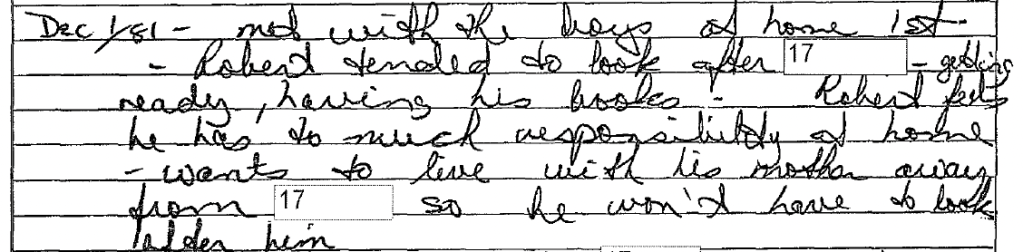 Dec 1/81 - met with the boys at home 1st -
- Robert tended to look after 17 - getting
ready, having his books - Robert feels
he has to much responsibility at home
- wants to live with his mother away
from 17 so he won't have to look
after him